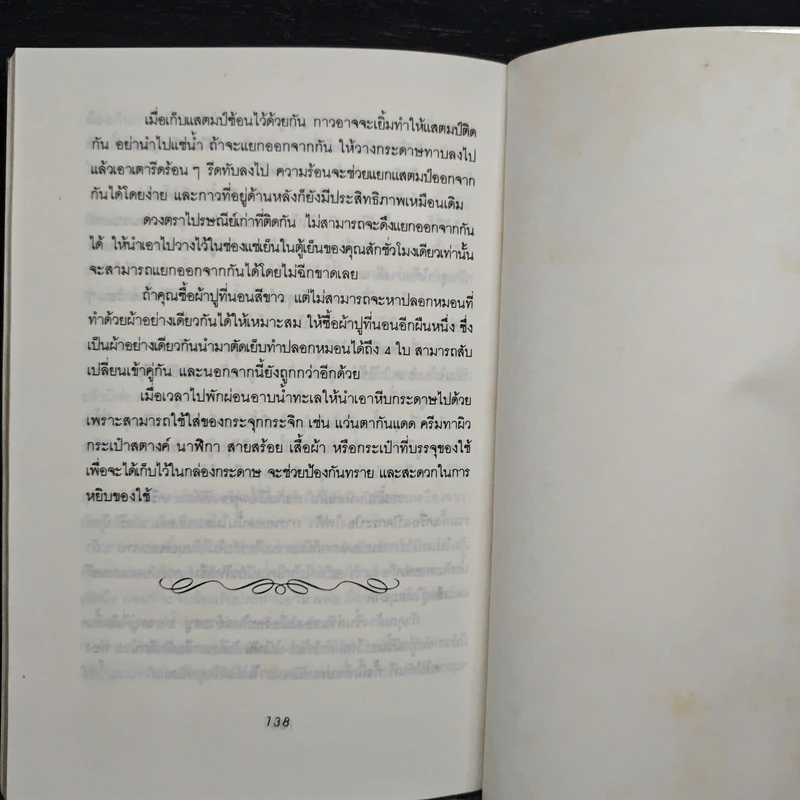 เมื่อเก็บแสตมป์ซ้อนไว้ด้วยกัน กาวอาจจะเยิ้มทำให้แสตมป์ติด
กัน อย่านำไปแช่น้ำ ถ้าจะแยกออกจากกัน ให้วางกระดาษทาบลงไป
แล้วเอาเตารีดร้อน ๆ รีดทับลงไป ความร้อนจะช่วยแยกแสตมป์ออกจาก
กันได้โดยง่าย และกาวที่อยู่ด้านหลังก็ยังมีประสิทธิภาพเหมือนเดิม
ดวงตราไปรษณีย์เก่าที่ติดกัน ไม่สามารถจะดึงแยกออกจากกัน
ได้ ให้นำเอาไปวางไว้ในช่องแช่เย็นในตู้เย็นของคุณสักชั่วโมงเดียวเท่านั้น
จะสามารถแยกออกจากกันได้โดยไม่ฉีกขาดเลย
ถ้าคุณซื้อผ้าปูที่นอนสีขาว แต่ไม่สามารถจะหาปลอกหมอนที่
ทำด้วยผ้าอย่างเดียวกันได้ให้เหมาะสม ให้ซื้อผ้าปูที่นอนอีกผืนหนึ่ง ซึ่ง
เป็นผ้าอย่างเดียวกันนำมาตัดเย็บทำปลอกหมอนได้ถึง 4 ใบ สามารถสับ
เปลี่ยนเข้าคู่กัน และนอกจากนี้ยังถูกกว่าอีกด้วย
เมื่อเวลาไปพักผ่อนอาบน้ำทะเลให้นำเอาหีบกระดาษไปด้วย
เพราะสามารถใช้ใส่ของกระจุกกระจิก เช่น แว่นตากันแดด ครีมทาผิว
กระเป๋าสตางค์ นาฬิกา สายสร้อย เสื้อผ้า หรือกระเป๋าที่บรรจุของใช้
เพื่อจะได้เก็บไว้ในกล่องกระดาษ จะช่วยป้องกันทราย และสะดวกในการ
หยิบของใช้
138